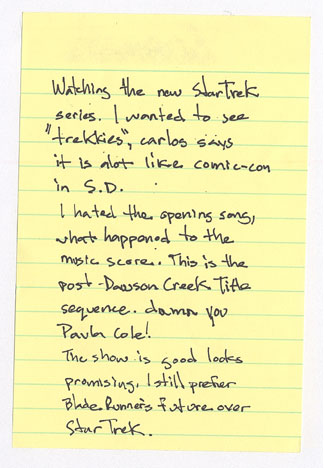 Watching the new Star Trek
series. I wanted to see
"trekkies", carlos says
it is alot like comic-con
in S.D.
I hated the opening song,
what happened to the
music score. This is the
post-Dawson Creek Title
sequence. damn you
Paula Cole!
The show is good looks
promising, I still prefer
Blade Runners future over
Star Trek.